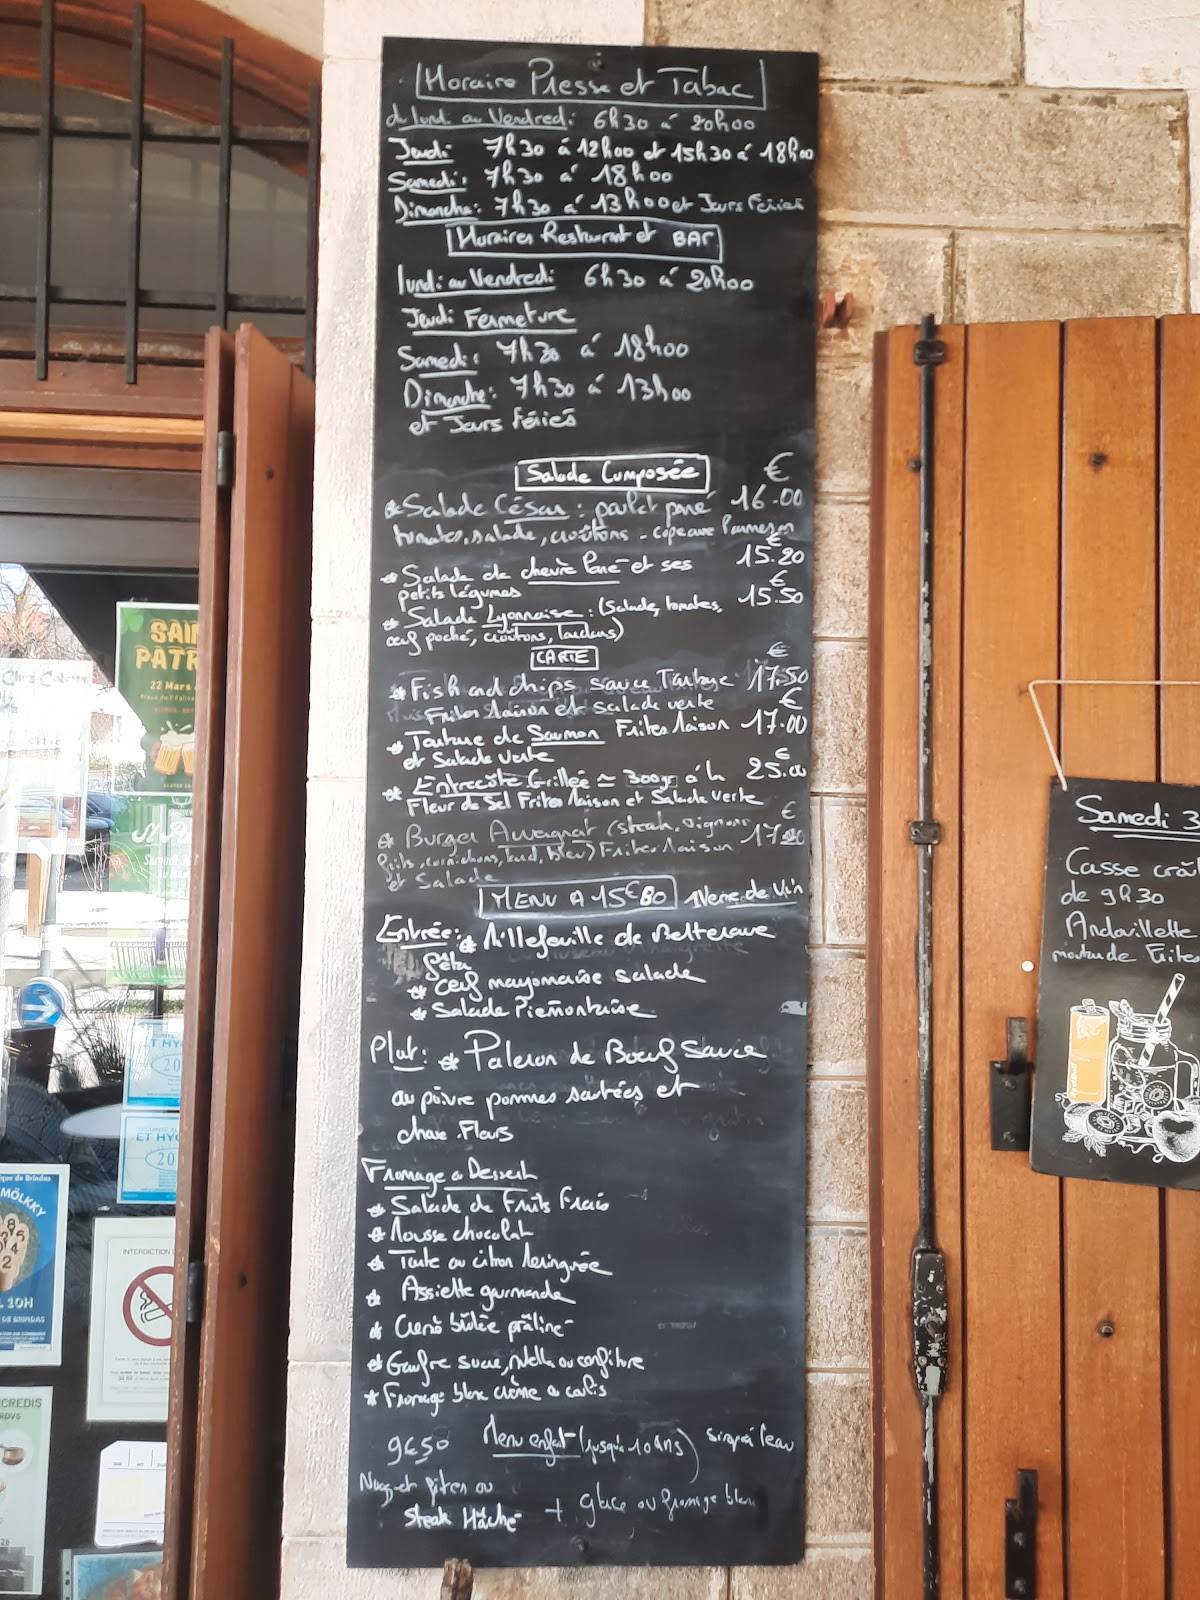 Horaire Presse et Tabac
du lundi au Vendredi: 6h30 à 20h00
Jeudi: 7h30 à 12h00 et 15h30 à 18h00
Samedi: 7h30 à 18h00
Dimanche: 7h30 à 13h00 et Jours Fériés
Horaires Restaurant et BAR
lundi au Vendredi 6h30 à 20h00
Jeudi Fermeture
Samedi: 7h30 à 18h00
Dimanche: 7h30 à 13h00
et Jours Fériés
Salade Composée €
* Salade César: poulet pané 16.00
tomates, salade, croûtons - copeaux Parmesan
* Salade de chèvre Pané et ses 15.20 €
petits légumes
* Salade Lyonnaise: (Salade, tomates, 15.50 €
œuf poché, croûtons, lardons)
CARTE
* Fish and chips sauce Tartare 17.50 €
Frites Maison et Salade verte
* Tartare de Saumon Frites Maison 17.00 €
et Salade Verte
* Entrecôte Grillée ≃ 300gr à la 25.00 €
Fleur de Sel Frites Maison et Salade Verte
* Burger Auvagnat (steak, oignons €
frits, cornichons, lard, bleu) Frites Maison
et Salade
MENU A 15€80 1 Verre de Vin
Entrée: * Millefeuille de Betterave
féta
* œuf mayonaise salade
* Salade Piémontaise
Plat: * Paleron de Bœuf Sauce
au poivre pommes sautées et
choux.Fleurs
Fromage ou Dessert
* Salade de Fruits Frais
* Mousse chocolat
* Tarte au citron Meringuée
* Assiette gourmande
* Creme brûlée praliné
* Gaufre sucre, nutella ou confiture
* Fromage blanc crème ou coulis
9€50 Menu enfant (jusqu'à 10 ans) sirop à l'eau
Nugget frites ou
Steak Hâché + glace ou fromage blanc
Samedi 3
Casse croû
de 9h30
Andouillette
moutarde Frites
SAIN
PATR
22 Mars
Place de l'Eglise
Chez Colette
Samedi 30
ET HY
20
ET HYG
20
INTERDICTION
que de Brindas
MÖLKKY
10H
DE BRINDAS
CREDIS
RDVS